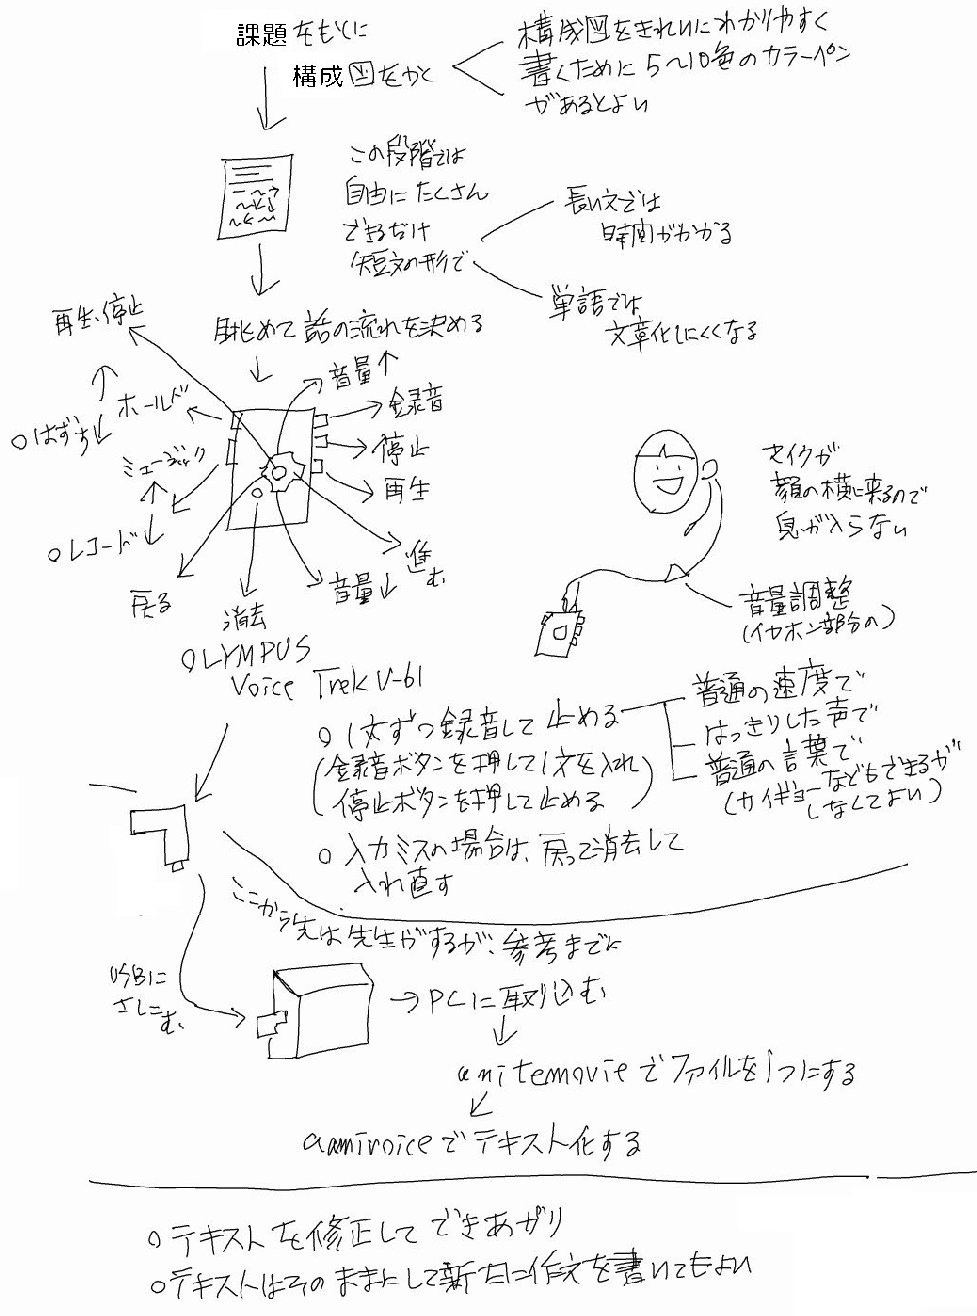 課題をもとに
構成図をかく
構成図をきれいにわかりやすく
書くために5〜10色のカラーペン
があるとよい
この段階では
自由にたくさん
できるだけ
短文の形で
長い文では
時間がかかる
単語では
文章化しにくくなる
眺めて話の流れを決める
再生、停止
ホールド
○はずす
ミュージック
○レコード
戻る
消去
音量↓
進む
音量↑
録音
停止
再生
OLYMPUS
Voice Trek V-61
マイクが
顔の横に来るので
息が入らない
音量調整
(イヤホン部分の)
○1文ずつ録音して止める
(録音ボタンを押して1文を入れ
停止ボタンを押して止める)
普通の速度で
はっきりした声で
普通の言葉で
(カイギョーなどもできるが
しなくてよい)
○入力ミスの場合は、戻って消去して
入れ直す
ここから先は先生がするが、参考までに
USBに
さしこむ
→PCに取り込む
unitemovieでファイルを1つにする
amivoiceでテキスト化する
○テキストを修正してできあがり
○テキストはそのままにして新たに作文を書いてもよい